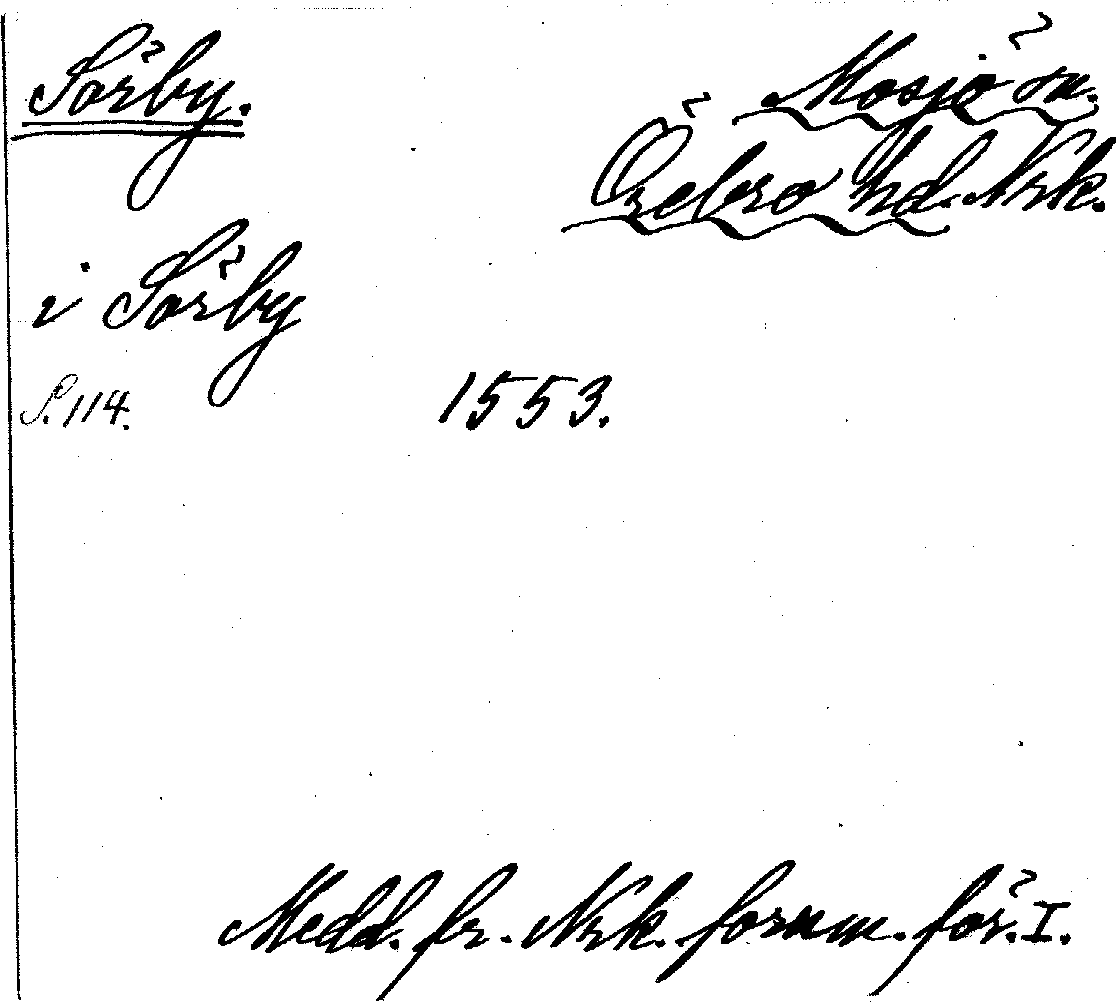 Sörby.
Mosjö sn.
Örebro hd. Nrk.
i Sörby
S. 114.
1553.
Medd. fr. Nrk. fornm. för. I.